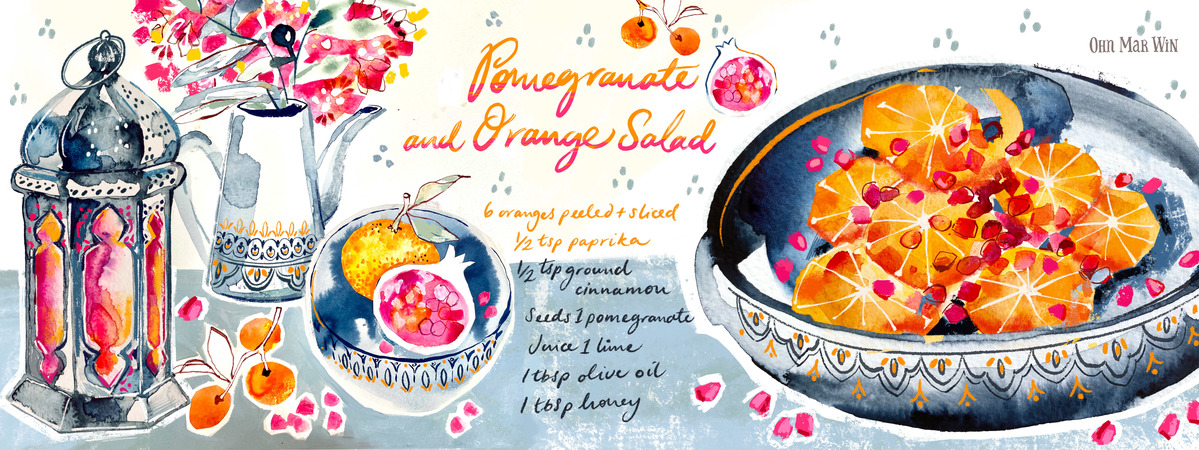 Pomegranate
and Orange Salad
6 oranges peeled + sliced
1/2 tsp paprika
1/2 tsp ground
cinnamon
Seeds 1 pomegranate
Juice 1 lime
1 tbsp olive oil
1 tbsp honey
OHN MAR WIN